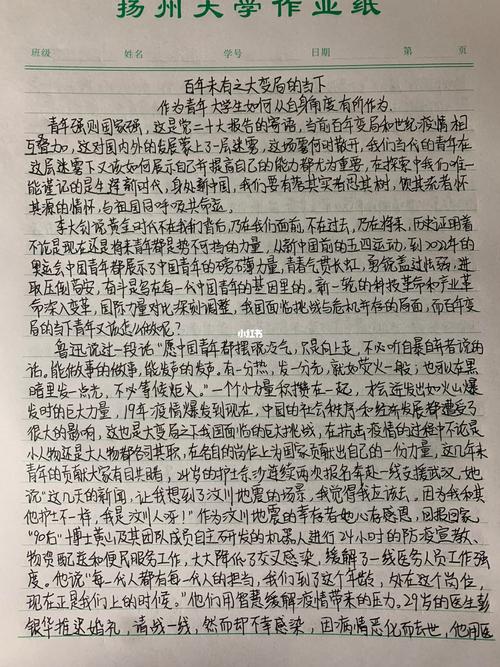 扬州大学作业纸
班级 姓名 学号 日期 第 页
百年未有之大变局的当下
作为青年大学生如何从自身角度有所作为.
青年强则国家强，这是党二十大报告的寄语，当前百年变局和世纪疫情相
互叠加，这对国内外的发展蒙上了一层迷雾，这场雾何时散开，我们当代的青年在
这层迷雾下又该如何展示自己并提高自己的能力都尤为重要，在探索中我们唯一
能谨记的是生逢新时代，身处新中国，我们要有落其实者思其树，饮其流者怀
其源的情怀，与祖国同呼吸共命运。
李大钊说黄金时代不在我们背后，乃在我们面前，不在过去，乃在将来，历史证明着
不论是现在还是将来青年都是势不可挡的力量，从新中国前的五四运动，到2022年的
奥运会中国青年都展示了中国青年的磅礴力量，青春气贯长虹，勇锐盖过怯弱，进
取压倒苟安，奋斗是写在每一个中国青年的基因里的。新一轮的科技革命和产业革
命深入变革，国际力量对比深刻调整，我国面临挑战与危机并存的局面，而百年变
局的当下青年又该怎么做呢？
鲁迅说过一段话“愿中国青年都摆脱冷气，只是向上走，不必听自暴自弃者说的
话。能做事的做事，能发声的发声。有一分热，发一分光，就如荧火一般；也可以在黑
暗里发一点光，不必等候炬火。”一个个小力量积攒在一起，才会迸发出如火山爆
发时的巨大力量，19年疫情爆发到现在，中国的社会秩序和经济发展都遭受了
很大的影响，这也是大变局之下我国面临的巨大挑战，在抗击疫情的过程中不论是
小人物还是大人物都各司其职，在各自的岗位上为国家贡献出自己的一份力量，这几年来
青年的贡献大家有目共睹，24岁的护士佘沙连续两次报名奔赴一线支援武汉，她
说“这几天的新闻，让我想到了汶川地震的场景，我觉得我应该去。因为我和其
他护士不一样，我是汶川人呀！”作为汶川地震的幸存者她心存感恩，回报国家。
“90后”博士黄山及其团队成员自主研发的机器人进行24小时的防疫宣教、
物资配送和便民服务工作，大大降低了交叉感染，缓解了一线医务人员工作强
度。他说“每一代人都有每一代人的担当，我们到了这个年龄，处在这个岗位，
现在正是我们上的时候。”他们用智慧缓解疫情带来的压力。29岁的医生彭
银华推迟婚礼，请战一线，然而却不幸感染，因病情恶化而去世，他用医
小红书